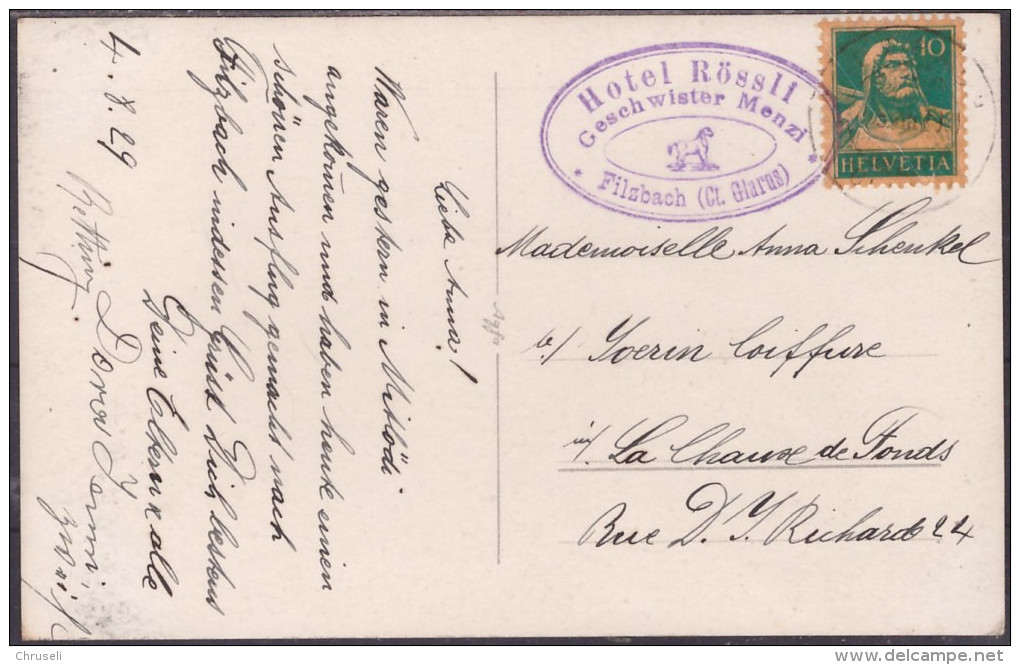 4. 8. 29
Liebe Anna!
Waren gestern in Mitlödi
angekom̄en und haben heute einen
schönen Ausflug gemacht nach
Filzbach indessen Grüsst Dich bestens
Deine Eltern & alle
Dora
Hotel Rössli
Geschwister Menzi
* Filzbach (Ct. Glarus) *
10
HELVETIA
Mademoiselle Anna Schenkel
b/ Yverin Coiffure
in/ La Chaux de Fonds
Rue D. J. Richard 24
Agfa
© Chruseli
www.delcampe.net